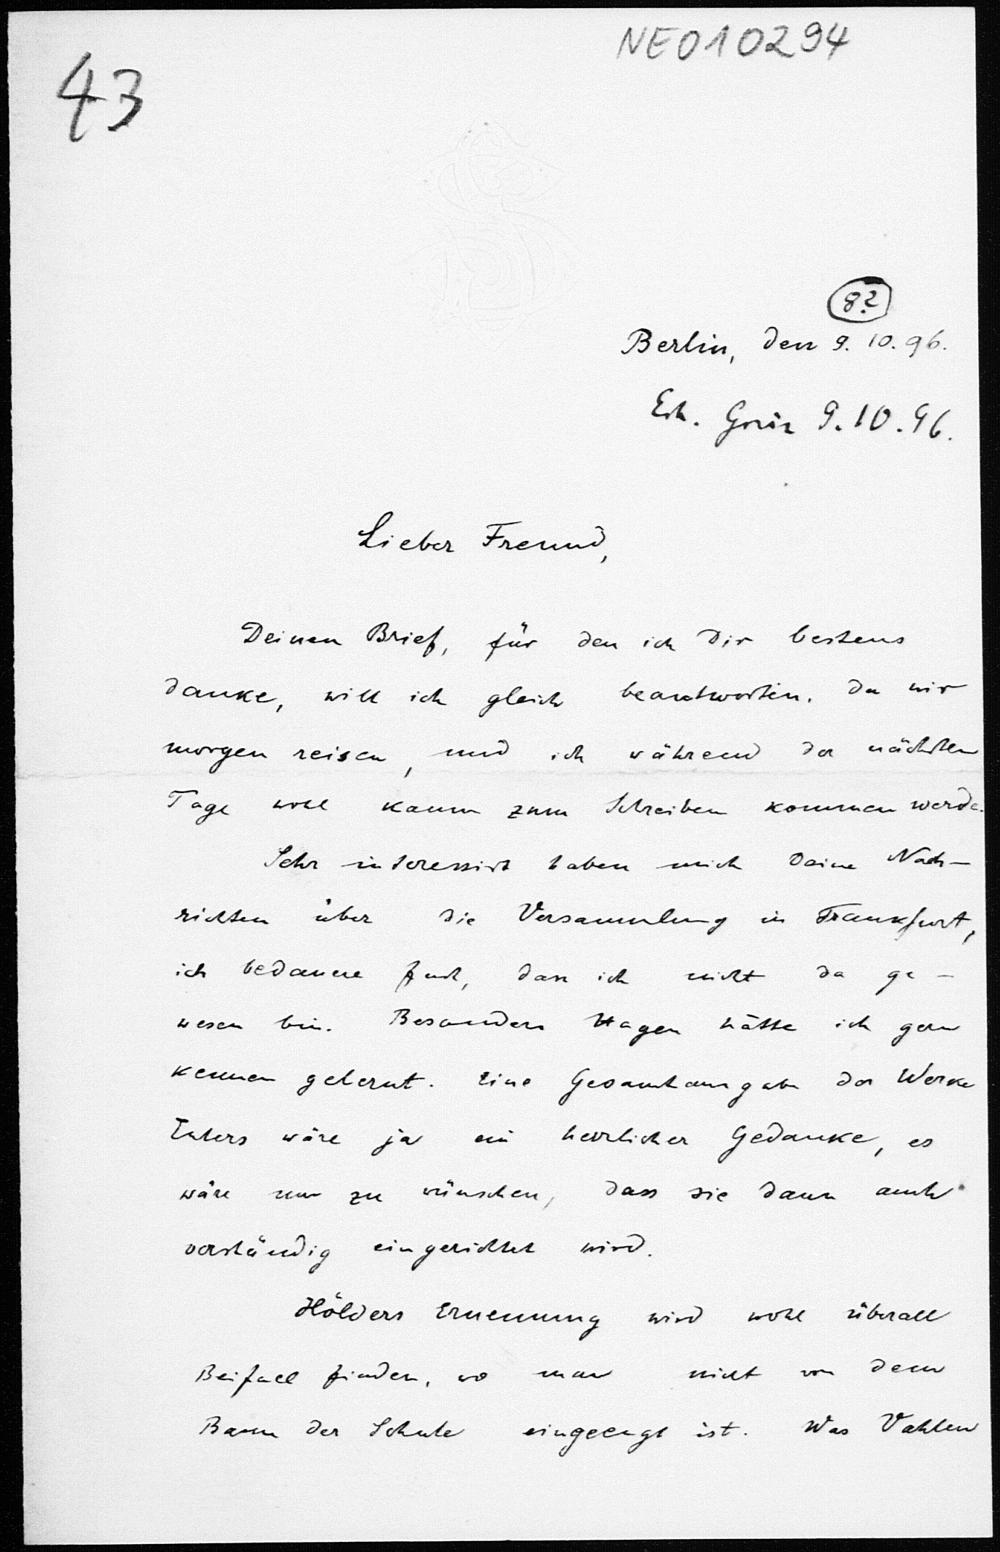 NE010294
43
8?
Berlin, den 9. 10. 96.
9.10.96.
Lieber Freund,
Deinen Brief, für den ich Dir bestens
danke, will ich gleich beantworten, da wir
morgen reisen, und ich während der nächsten
Tage wohl kaum zum Schreiben kommen werde.
Sehr interessirt haben mich Deine Nach-
richten über die Versammlung in Frankfurt,
ich bedauere fast, dass ich nicht da ge-
wesen bin. Besonders Hagen hätte ich gern
kennen gelernt. Eine Gesamtausgabe der Werke
Eulers wäre ja ein herrlicher Gedanke, es
wäre nur zu wünschen, dass sie dann auch
verständig eingerichtet wird.
Hölders Ernennung wird wohl überall
Beifall finden, wo man nicht von dem
Bann der Schule eingeengt ist. Was Vahlen